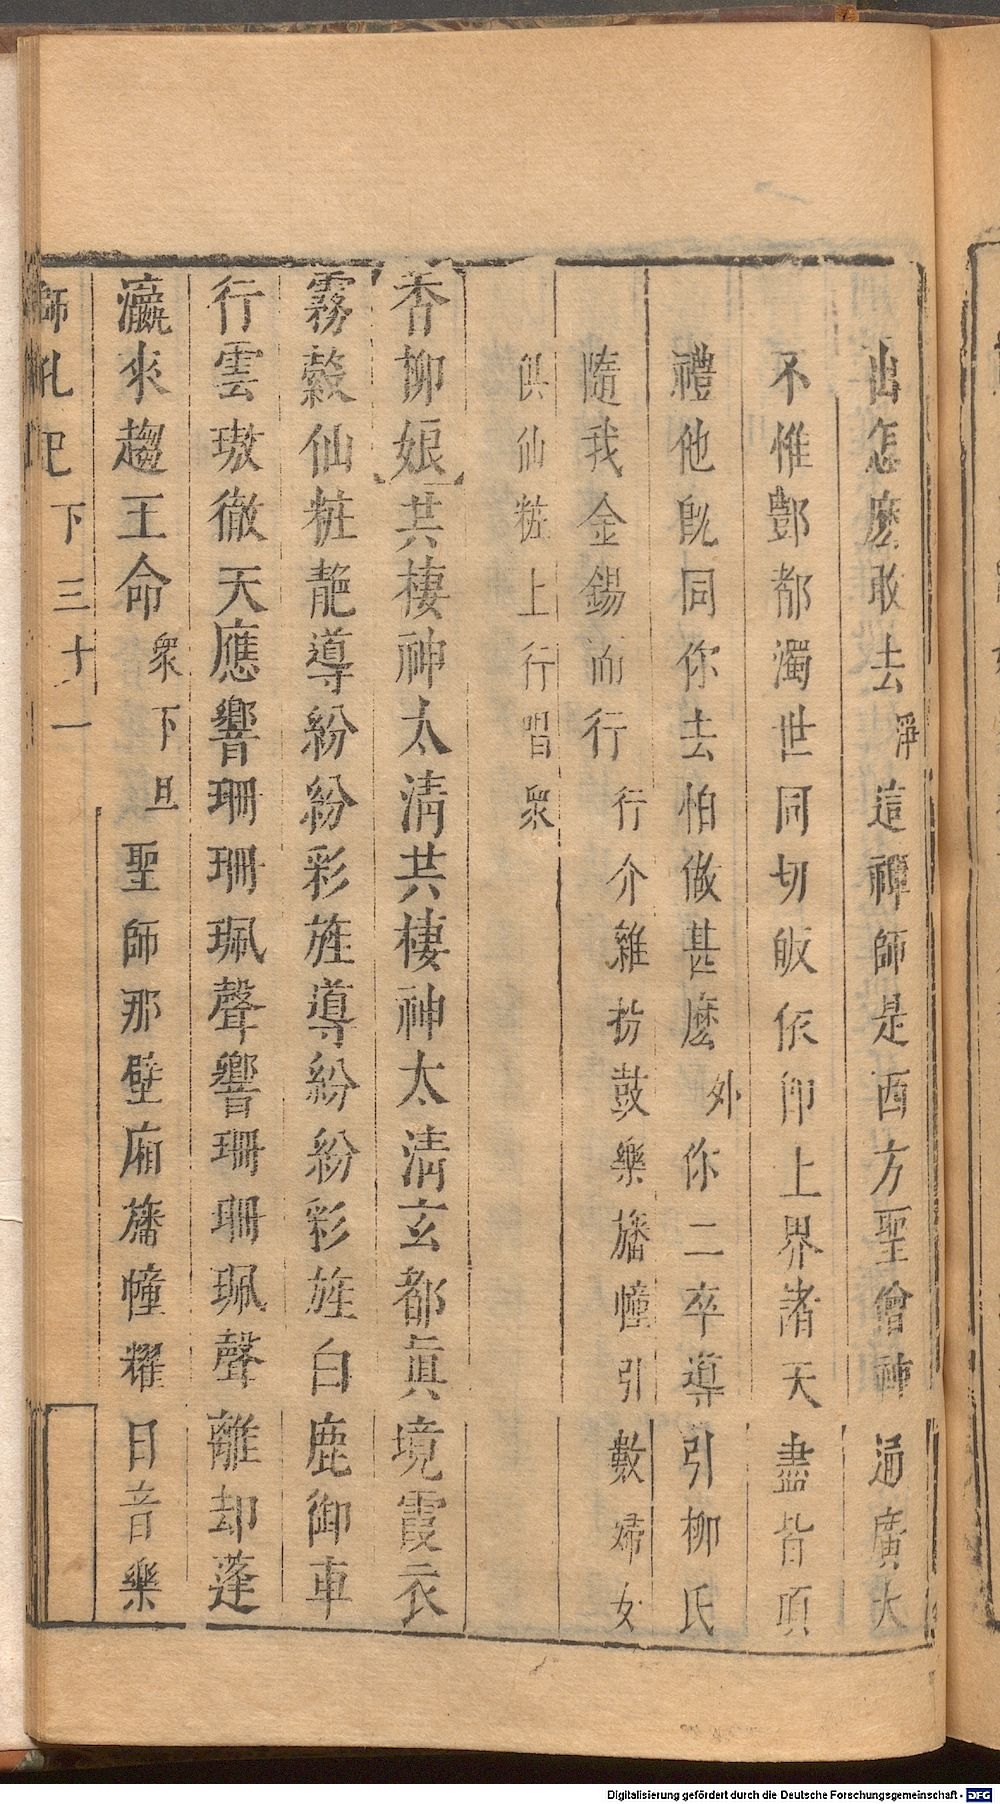 出怎麽敢去淨這禪師是西方聖僧神通廣大
不惟酆都濁世同切皈依卽上界諸天盡皆項
禮他旣同你去怕做甚麽外你二卒導引柳氏
隨我金錫而行行介雜扮鼓樂旛幢引數婦女
俱仙粧上行唱衆
香柳娘共棲神太淸共棲神太淸玄都眞境霞衣
霧縠仙粧靘導紛紛彩旌導紛紛彩旌白鹿御車
行雲璈徹天應響珊珊珮聲響珊珊珮聲離却蓬
瀛來趨王命衆下旦聖師那壁廂旛幢耀日音樂
師孔巴下三十一
Digitalisierung gefördert durch die Deutsche Forschungsgemeinschaft - DFG